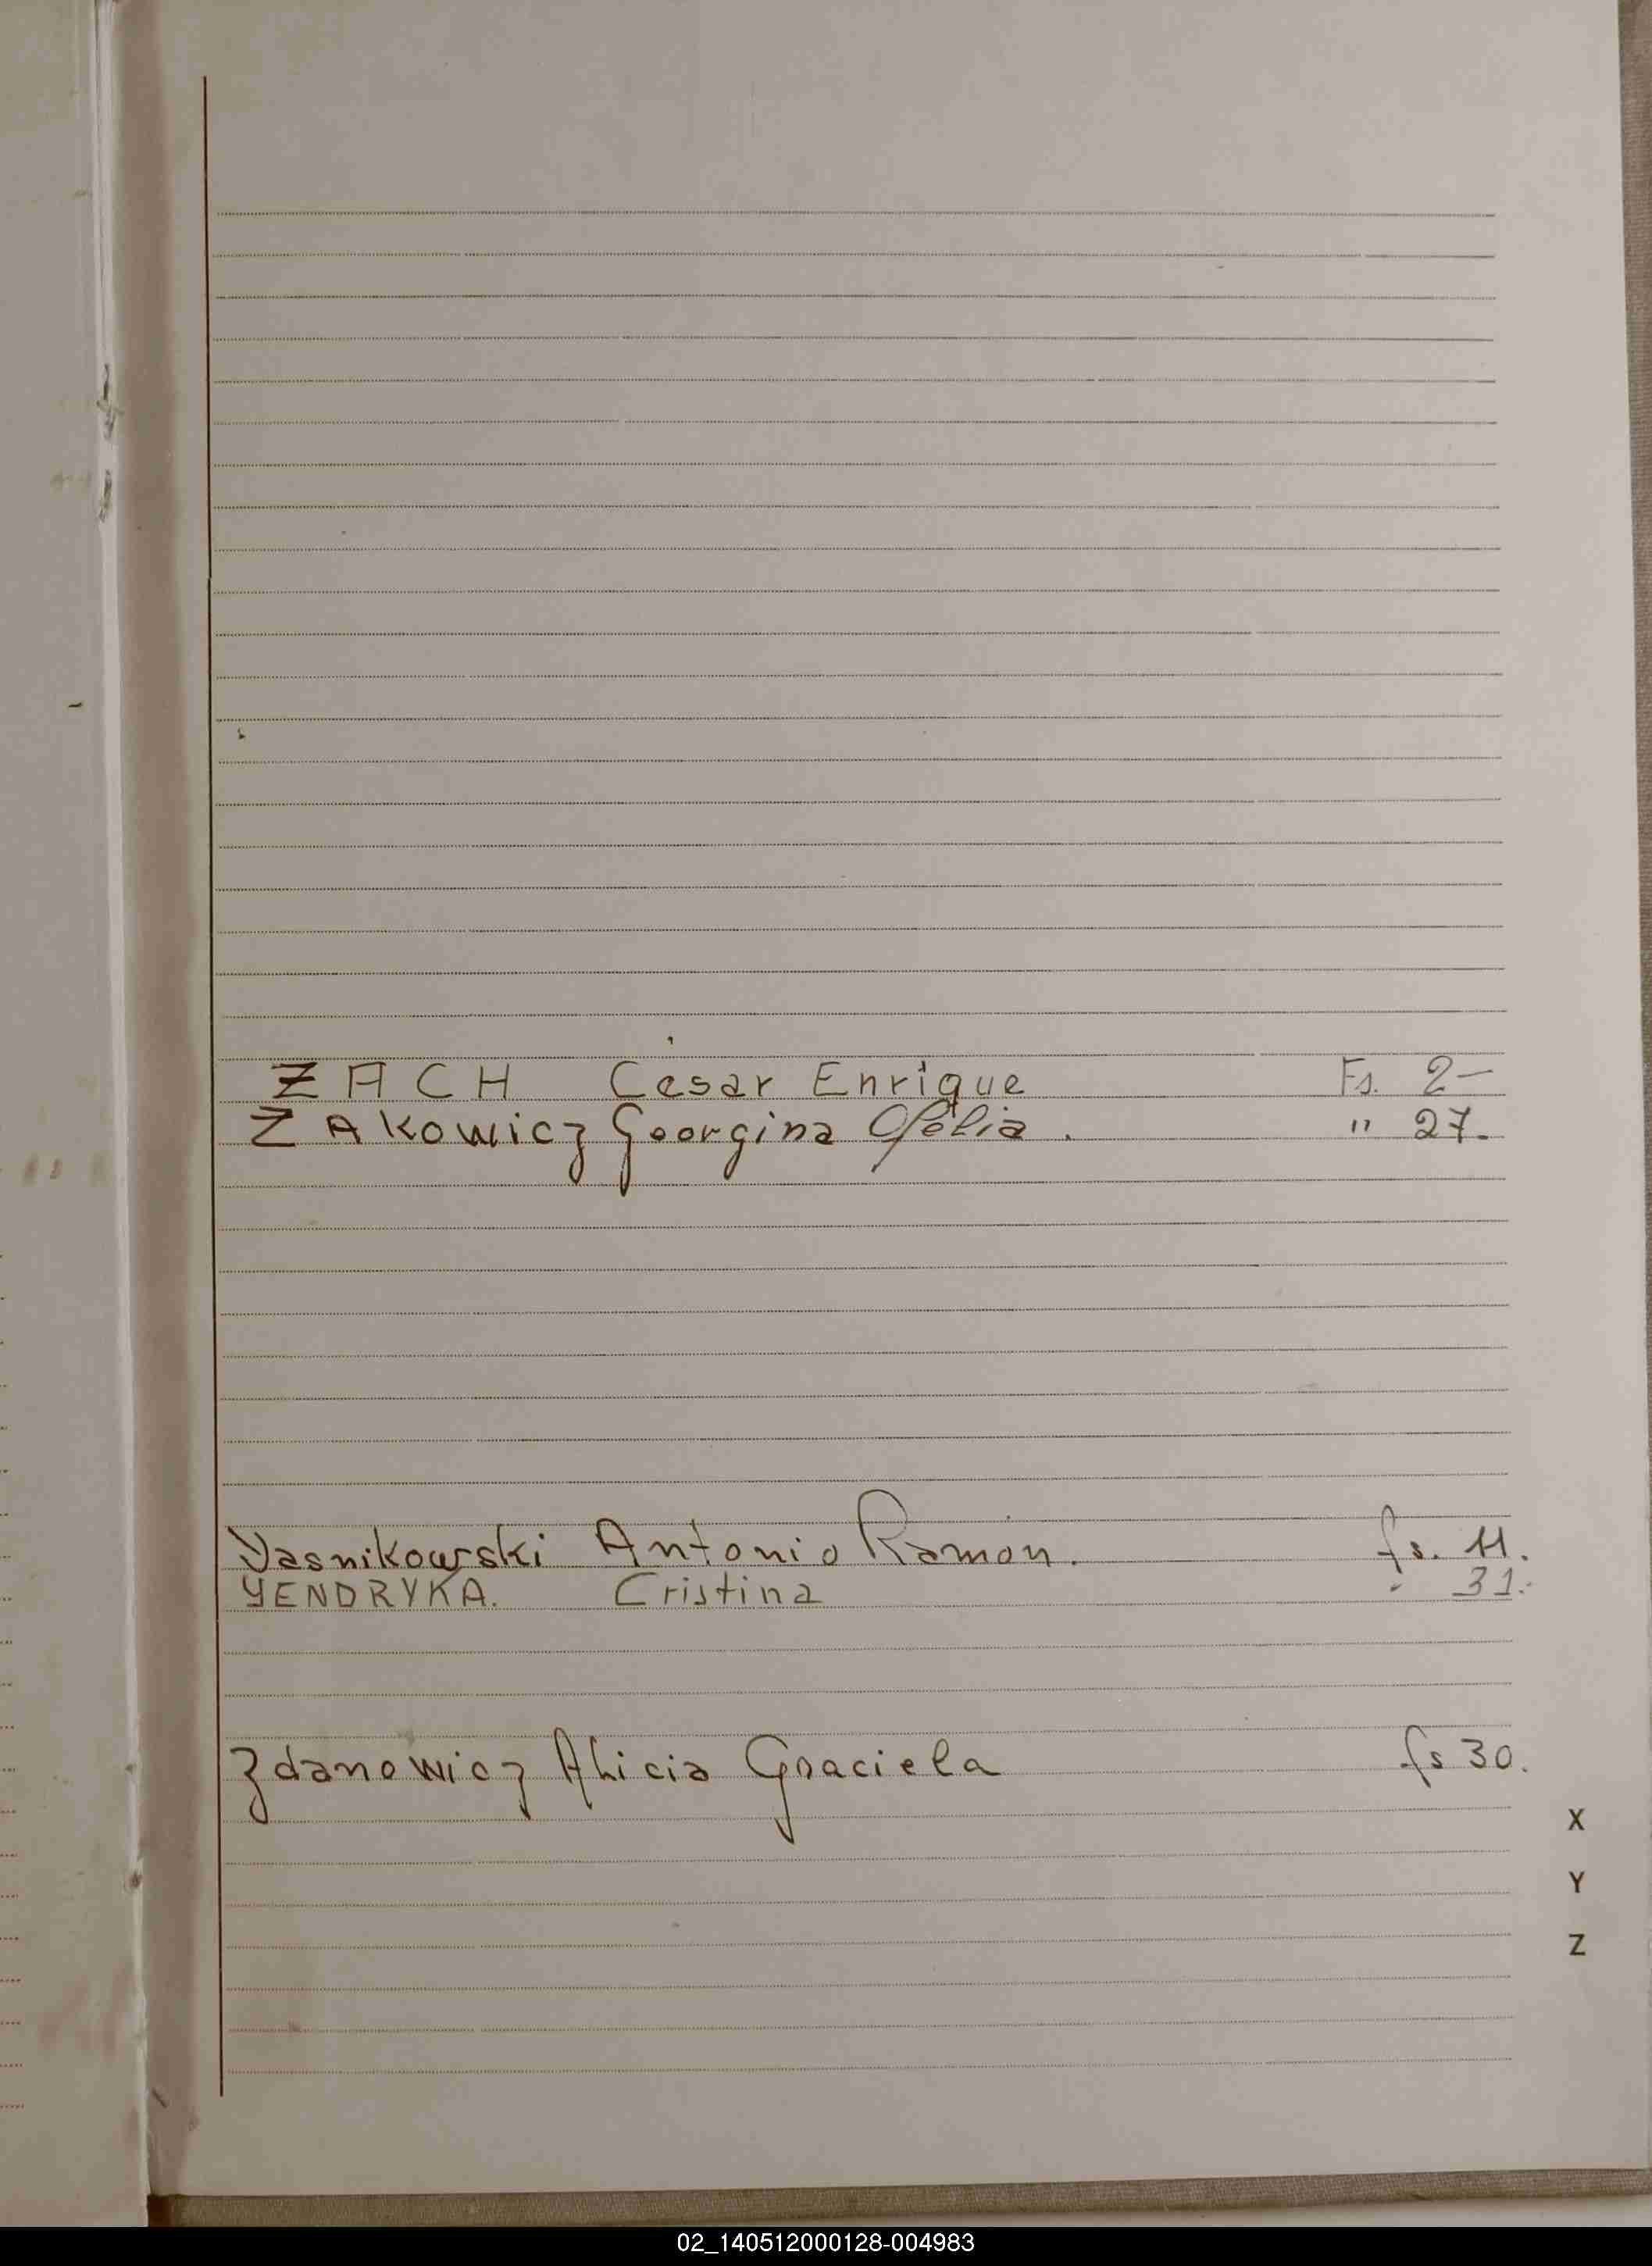 ZACH César Enrique Fs. 2-
ZAKowicz Georgina Ofelia. " 27.
Yasnikowski Antonio Ramón. fs. 11.
YENDRYKA. Cristina " 31.
Zdanowicz Alicia Graciela fs 30.
X
Y
Z
02_140512000128-004983